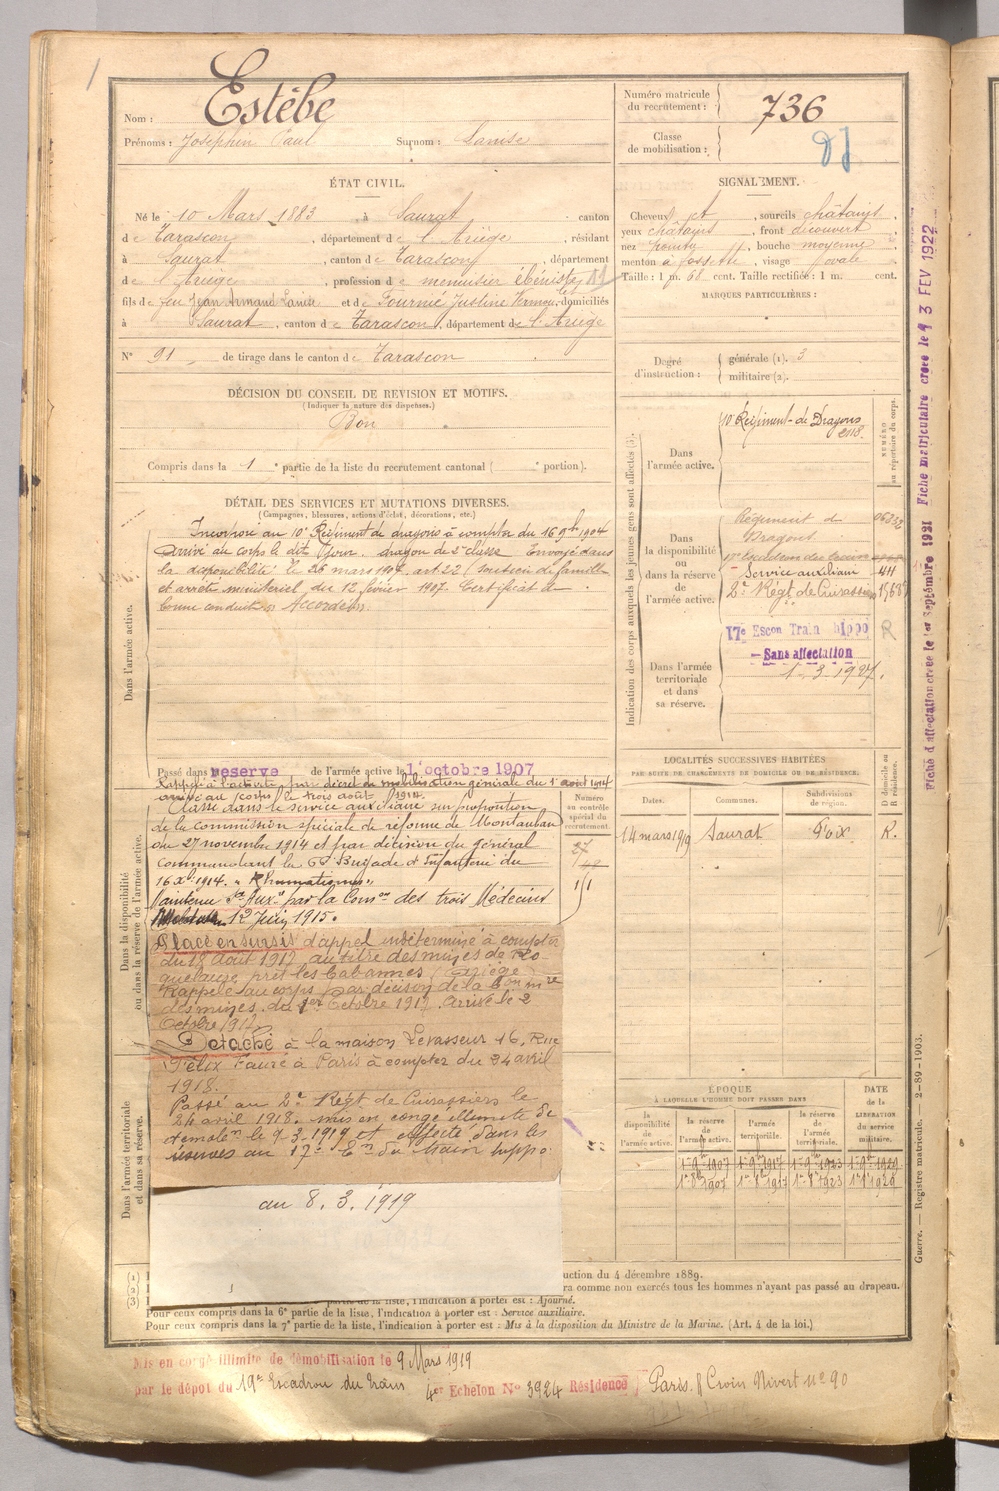 1
Nom : Estèbe
Prénoms : Joséphin Paul Surnom : Lanise
Numéro matricule du recrutement : 736
Classe de mobilisation :
ÉTAT CIVIL.
Né le 10 Mars 1883 à Saurat canton
de Tarascon, département de l'Ariège, résidant
à Saurat, canton de Tarascon, département
de l'Ariège, profession de menuisier ébéniste
fils de feu Jean Armand Lanise et de Fournié Justine domiciliés
à Saurat, canton de Tarascon, département de l'Ariège
N° 91 de tirage dans le canton de Tarascon
SIGNALEMENT.
Cheveux et, sourcils châtains,
yeux châtains, front découvert
nez pointu, bouche moyenne
menton à fossette, visage ovale
Taille : 1 m. 68 cent. Taille rectifiée : 1 m. cent.
MARQUES PARTICULIÈRES :
Degré d'instruction : générale (1). 3
militaire (2).
DÉCISION DU CONSEIL DE REVISION ET MOTIFS.
(Indiquer la nature des dispenses.)
Bon
Compris dans la 1e partie de la liste du recrutement cantonal ( e portion).
DÉTAIL DES SERVICES ET MUTATIONS DIVERSES.
(Campagnes, blessures, actions d'éclat, décorations, etc.)
Dans l'armée active.
Incorporé au 10e Régiment de dragons à compter du 16 9bre 1904
Arrivé au corps le dit jour. dragon de 2e classe Envoyé dans
la disponibilité le 26 mars 1907 art. 22 (soutien de famille
et arrêté ministériel du 12 février 1907. Certificat de
bonne conduite "Accordé".
Passé dans reserve de l'armée active le 1 octobre 1907
Rappelé à l'activité par décret de mobilisation générale du 1er août 1914
arrivé au corps le trois août 1914.
Dans la disponibilité ou dans la réserve de l'armée active.
Classé dans le service auxiliaire sur proposition
de la commission spéciale de réforme de Montauban
du 27 novembre 1914 et par décision du général
Commandant la Brigade d'Infanterie du
16 Xbre 1914. "Rhumatismes"
Maintenu Sce Auxre par la Comon des trois Médecins
12 Juin 1915.
Numéro au contrôle spécial du recrutement
Placé en sursis d'appel indéterminé à compter
du 18 Août 1917 au titre des mines de Ro-
quelaure près les Cabannes (Ariège)
Rappelé au corps par décison de la
des mines du 1er Octobre 1917. Arrivé le 2
Octobre 1917
Détaché à la maison Levasseur 16, Rue
Félix Faure à Paris à compter du 24 avril
1918.
Passé au 2e Régt de Cuirassiers le
24 avril 1918. mis en congé illimité de
démolon le 9-3-1919 et affecté dans les
réserves au 17e Eon du train hippo.
au 8. 3. 1919
Dans l'armée territoriale et dans sa réserve.
Indication des corps auxquels les jeunes gens sont affectés (3).
Dans l'armée active.
10e Régiment de Dragons
NUMÉRO au répertoire du corps.
Dans la disponibilité ou dans la réserve de l'armée active.
Régiment de
Dragons
17e Escadron du train
Service auxiliaire 411
2e Régt de Cuirassiers
17e Escon Train hippo R
— Sans affectation
1-3-1927.
Dans l'armée territoriale et dans sa réserve.
LOCALITÉS SUCCESSIVES HABITÉES
PAR SUITE DE CHANGEMENTS DE DOMICILE OU DE RÉSIDENCE.
Dates. Communes. Subdivisions de région. D domicile ou R résidence.
14 mars 1919 Saurat Foix R.
ÉPOQUE
À LAQUELLE L'HOMME DOIT PASSER DANS
la disponibilité de l'armée active. la réserve de l'armée active. l'armée territoriale. la réserve de l'armée territoriale. DATE de la LIBÉRATION du service militaire.
(1)
(2)
(3)
uction du 4 décembre 1889.
ra comme non exercés tous les hommes n'ayant pas passé au drapeau.
partie de la liste, l'indication à porter est : Ajourné.
Pour ceux compris dans la 6e partie de la liste, l'indication à porter est : Service auxiliaire.
Pour ceux compris dans la 7e partie de la liste, l'indication à porter est : Mis à la disposition du Ministre de la Marine. (Art. 4 de la loi.)
Mis en congé illimité de démobilisation le 9 Mars 1919
par le dépôt du 19e Escadron du train 4er Echelon No 3924 Résidence Paris. R Croix Nivert no 90
Fiche d'affectation créée le 1er Septembre 1921 Fiche matriculaire créée le 3 FEV 1922
Guerre. — Registre matricule. — 2-89-1903.